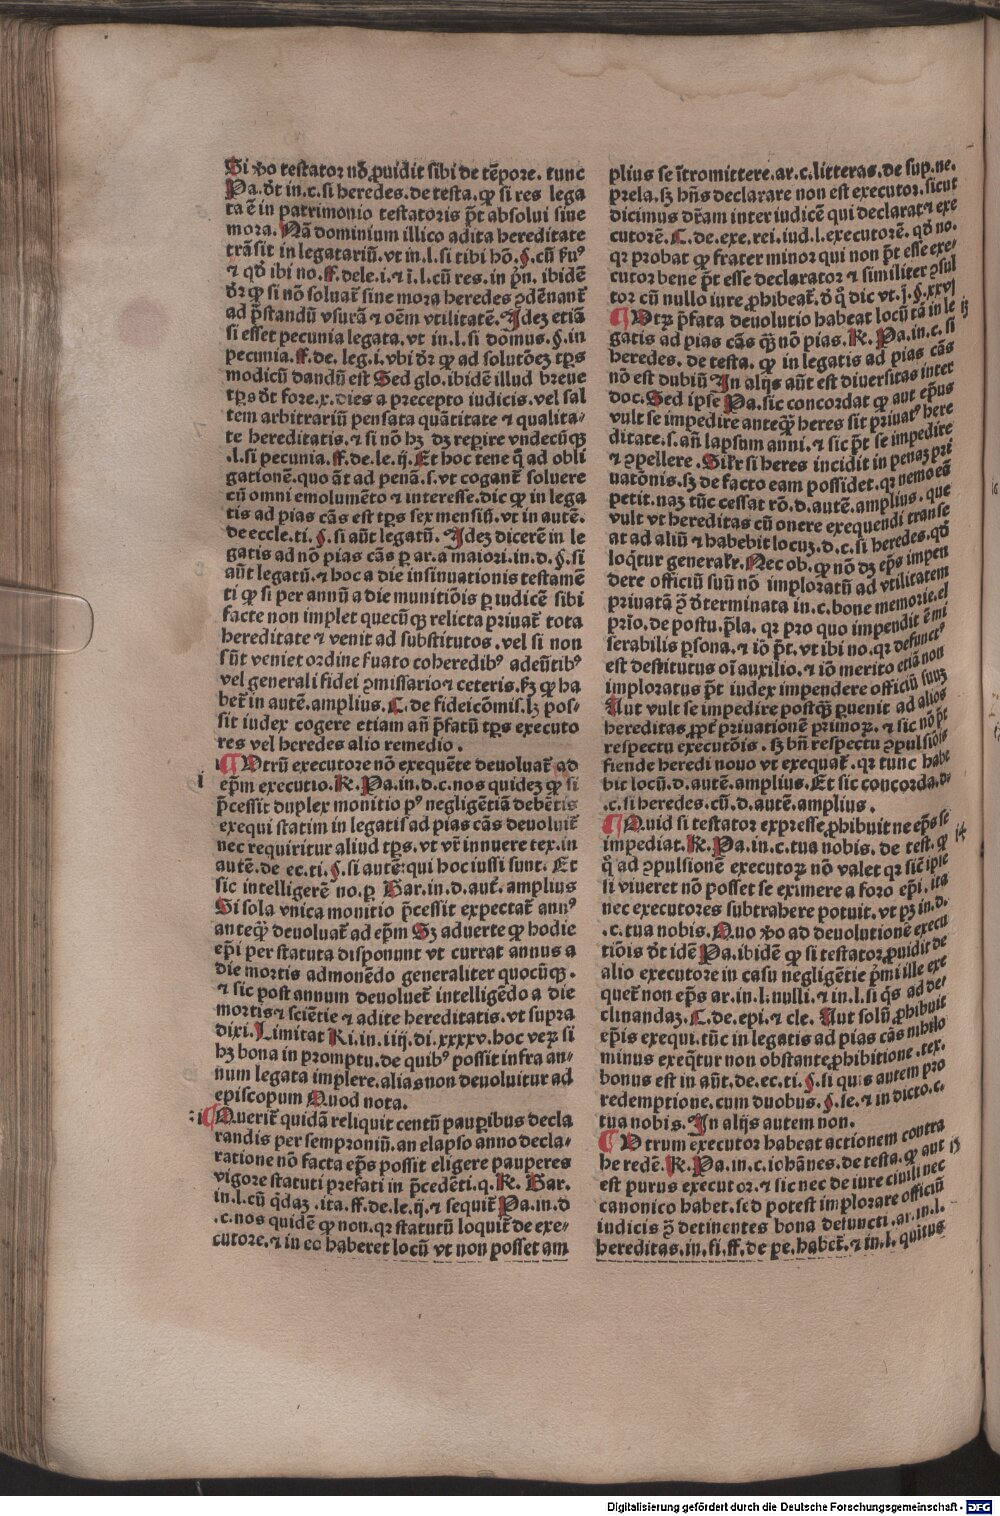 Si ꝟo testator nō ꝓuidit sibi de tēpore. tunc
Pa. dt in. c. si heredes. de testa. ꝙ si res lega
ta ē in patrimonio testatoris pt absolui siue
mora. Nā dominium illico adita hereditate
trāsit in legatariū. vt in. l. si tibi hō. §. cū ẜuꝰ
⁊ qd ibi no. ff. dele. i. ⁊ ī. l. cū res. in pn. ibidē
dr ꝙ si nō soluat sine mora heredes ꝯdēnant
ad pstandū vsurā ⁊ oēm vtilitatē. Idez etiā
si esset pecunia legata. vt in. l. si domus. §. in
pecunia. ff. de. leg. i. vbi dr ꝙ ad solutōez tps
modicū dandū est Sed glo. ibidē illud breue
tps dt fore. x. dies a precepto iudicis. vel sal
tem arbitrariū pensata quātitate ⁊ qualita⸗
te hereditatis. ⁊ si nō hz dz reperire vndecūqꝫ
.l. si pecunia. ff. de. le. ij. Et hoc tene q̄ ad obli
gationē. quo āt ad penā. s. vt cogant soluere
cū omni emolumēto ⁊ interesse. dic ꝙ in lega
tis ad pias cās est tps sex mensiū. vt in autē.
de eccle. ti. §. si aūt legatū. Idez dicerē in le
gatis ad nō pias cās ꝑ ar. a maiori. in. d. §. si
aūt legatū. ⁊ hoc a die insinuationis testamē
ti ꝙ si per annū a die munitiōis ꝑ iudicē sibi
facte non implet quecūqꝫ relicta priuat tota
hereditate ⁊ venit ad substitutos. vel si non
sūt veniet ordine ẜuato coheredibꝰ adeūtibꝰ
vel generali fidei ꝯmissario ⁊ ceteris. ẜz ꝙ ha
bet in autē. amplius. C. de fideicōmis. lz pos⸗
sit iudex cogere etiam añ pfatū tps executo
res vel heredes alio remedio.
¶ Vtrū executore nō exequēte deuoluat ad
i
epm executio. R. Pa. in. d. c. nos quidez ꝙ si
pcessit duplex monitio pꝰ negligētiā debētis
exequi statim in legatis ad pias cās deuoluit
nec requiritur aliud tps. vt vr innuere tex. in
autē. de ec. ti. §. si autē: qui hoc iussi sunt. Et
sic intelligerē no. ꝑ Bar. in. d. aut. amplius
Si sola vnica monitio pcessit expectat annꝰ
anteqꝫ deuoluat ad epm Sz aduerte ꝙ hodie
epi per statuta disponunt vt currat annus a
die mortis admonēdo generaliter quocūqꝫ.
⁊ sic post annum deuoluet intelligēdo a die
mortis ⁊ sciētie ⁊ adite hereditatis. vt supra
dixi. Limitat Ri. in. iiij. di. xxxxv. hoc veꝝ si
hz bona in promptu. de quibꝰ possit infra an⸗
num legata implere. alias non deuoluitur ad
episcopum Quod nota.
¶ Querit quidā reliquit centū pauꝑibus decla
randis per semproniū. an elapso anno decla⸗
ratione nō facta eps possit eligere pauperes
vigore statuti prefati in pcedēti. q. R. Bar.
in. l. cū qdaz. ita. ff. de. le. ij. ⁊ sequit Pa. in. d
.c. nos quidē ꝙ non. qr statutū loquit de exe⸗
cutore. ⁊ in eo haberet locū vt non posset am
plius se ītromittere. ar. c. litteras. de sup. ne.
prela. sz hñs declarare non est executor. sicut
dicimus dram inter iudicē qui declarat ⁊ exe
cutorē. C. de. exe. rei. iud. l. executorē. qd no.
qr probat ꝙ frater minor qui non pt esse exe⸗
cutor bene pt esse declarator ⁊ similiter ꝯsul
tor cū nullo iure ꝓhibeat. d q̄ dic vt. j. §. xxvj
¶ Vtꝝ pfata deuolutio habeat locū tā in le
13
gatis ad pias cās qꝫ nō pias. R. Pa. in. c. si
heredes. de testa. ꝙ in legatis ad pias cās
nō est dubiū In alijs aūt est diuersitas inter
doc. Sed ipse Pa. sic concordat ꝙ aut epus
vult se impedire anteqꝫ heres sit priuatꝰ here
ditate. s. añ lapsum anni. ⁊ sic pt se impedire
⁊ ꝯpellere. Silr si heres incidit in penaz pri
uatōnis. sz de facto eam possidet. qr nemo eā
petit. naz tūc cessat rō. d. autē. amplius. que
vult vt hereditas cū onere exequendi transe
at ad aliū ⁊ habebit locuz. d. c. si heredes. qd
loqtur generalr. Nec ob. ꝙ nō dz eps impen
dere officiū suū nō imploratū ad vtilitatem
priuatā ꝫ determinata in. c. bone memorie. el
prio. de postu. pla. qr pro quo impendit ē mi
serabilis ꝑsona. ⁊ iō pt. vt ibi no. qr defunctꝰ
est destitutus oī auxilio. ⁊ iō merito etiā non
imploratus pt iudex impendere officiū suuz
Aut vult se impedire postqꝫ ꝑuenit ad alios
hereditas ꝓpt priuationē primoꝝ. ⁊ sic nō pt
respectu executōis. sz bñ respectu ꝯpulsiōis
fiende heredi nouo vt exequat. qr tunc habe
bit locū. d. autē. amplius. Et sic concorda. d.
.c. si heredes. cū. d. autē. amplius.
¶ Quid si testator expresse ꝓhibuit ne eps se
14
impediat. R. Pa. in. c. tua nobis. de test. ꝙ
q̄ ad ꝯpulsionē executoꝝ nō valet qr sic ipse
si viueret nō posset se eximere a foro epi. ita
nec executores subtrahere potuit. vt pꝫ in. d.
.c. tua nobis. Quo ꝟo ad deuolutionē execu
tiōis dt idē Pa. ibidē ꝙ si testator ꝓuidit de
alio executore in casu negligētie pmi ille exe
quet non eps ar. in. l. nulli. ⁊ in. l. si qs ad de⸗
clinandaz. C. de. epi. ⁊ cle. Aut solū ꝓhibuit
epis exequi. tūc in legatis ad pias cās nihilo
minus exeqtur non obstante ꝓhibitione. tex.
bonus est in aūt. de. ec. ti. §. si quis autem pro
redemptione. cum duobus. §. se. ⁊ in dicto. c.
tua nobis. In alijs autem non.
¶ Vtrum executor habeat actionem contra
15
heredē. R. Pa. in. c. iohānes. de testa. ꝙ aut
est purus executor. ⁊ sic nec de iure ciuili nec
canonico habet. sed potest implorare officiū
iudicis ꝫ detinentes bona defuncti. ar. in. l.
hereditas. in. fi. ff. de pe. habet. ⁊ in. l. quitus
Digitalisierung gefördert durch die Deutsche Forschungsgemeinschaft - DFG